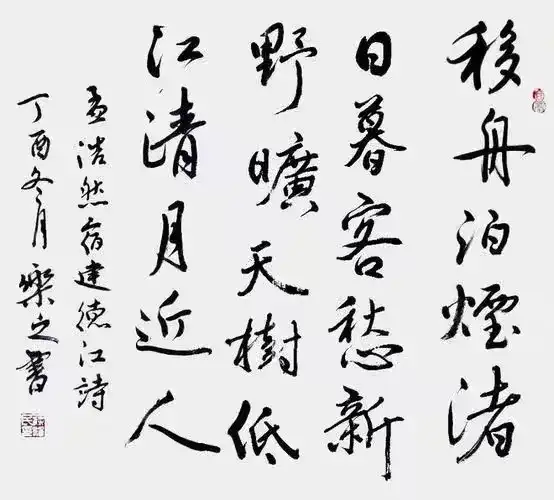 移舟泊煙渚
日暮客愁新
野曠天樹低
江清月近人
孟浩然宿建德江詩
丁酉冬月樂之書